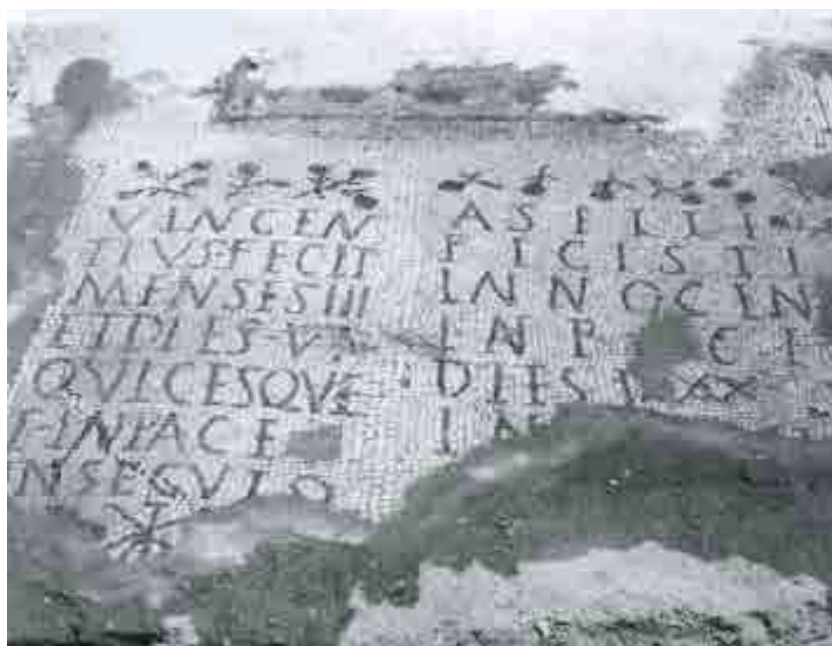 VINCEN
TIVS FECIT
MENSES III
ET DIES V
QVICESQVE
T IN PACE
ASELLI
FICISTI
INNOCEN
IN P CE
DIES XX